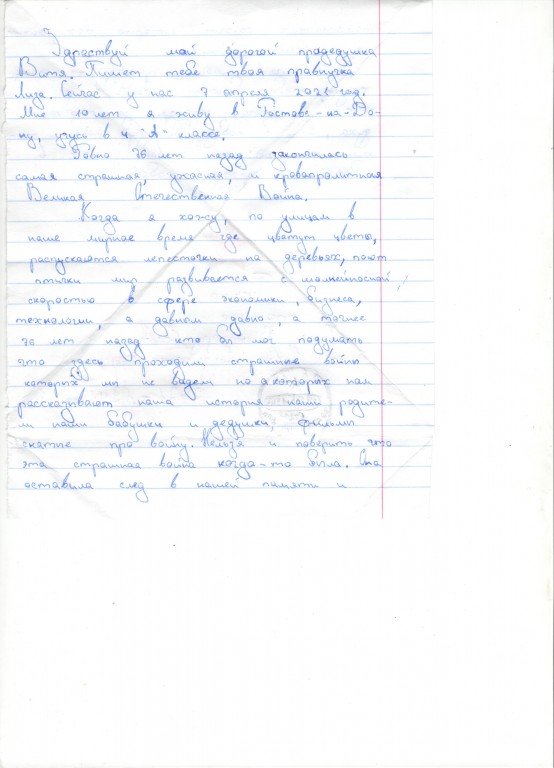 Здраствуй мой дорогой прадедушка
Витя. Пишет тебе твоя правнучка
Лиза. Сейчас у нас 7 апреля 2021 год.
Мне 10 лет я живу в Ростове-на-До-
ну, учусь в 4 "А" классе.
Ровно 76 лет назад закончилась
самая страшная, ужасная, и кровопролитная
Великая Отечественная Война.
Когда я хожу, по улицам в
наше мирное время где цветут цветы,
распускаются лепесточки на деревьях, поют
птички мир развивается с молнейносной
скоростью в сфере экономики, бизнеса,
технологии, а давным давно, а точнее
76 лет назад кто бы мог подумать
что здесь проходили страшные войны
которых мы не видем но о которых нам
рассказывают наша история наши родите-
ли наши бабушки и дедушки, фильмы
снятые про войну. Нельзя и поверить что
эта страшная война когда-то была. Она
оставила след в нашей памяти и